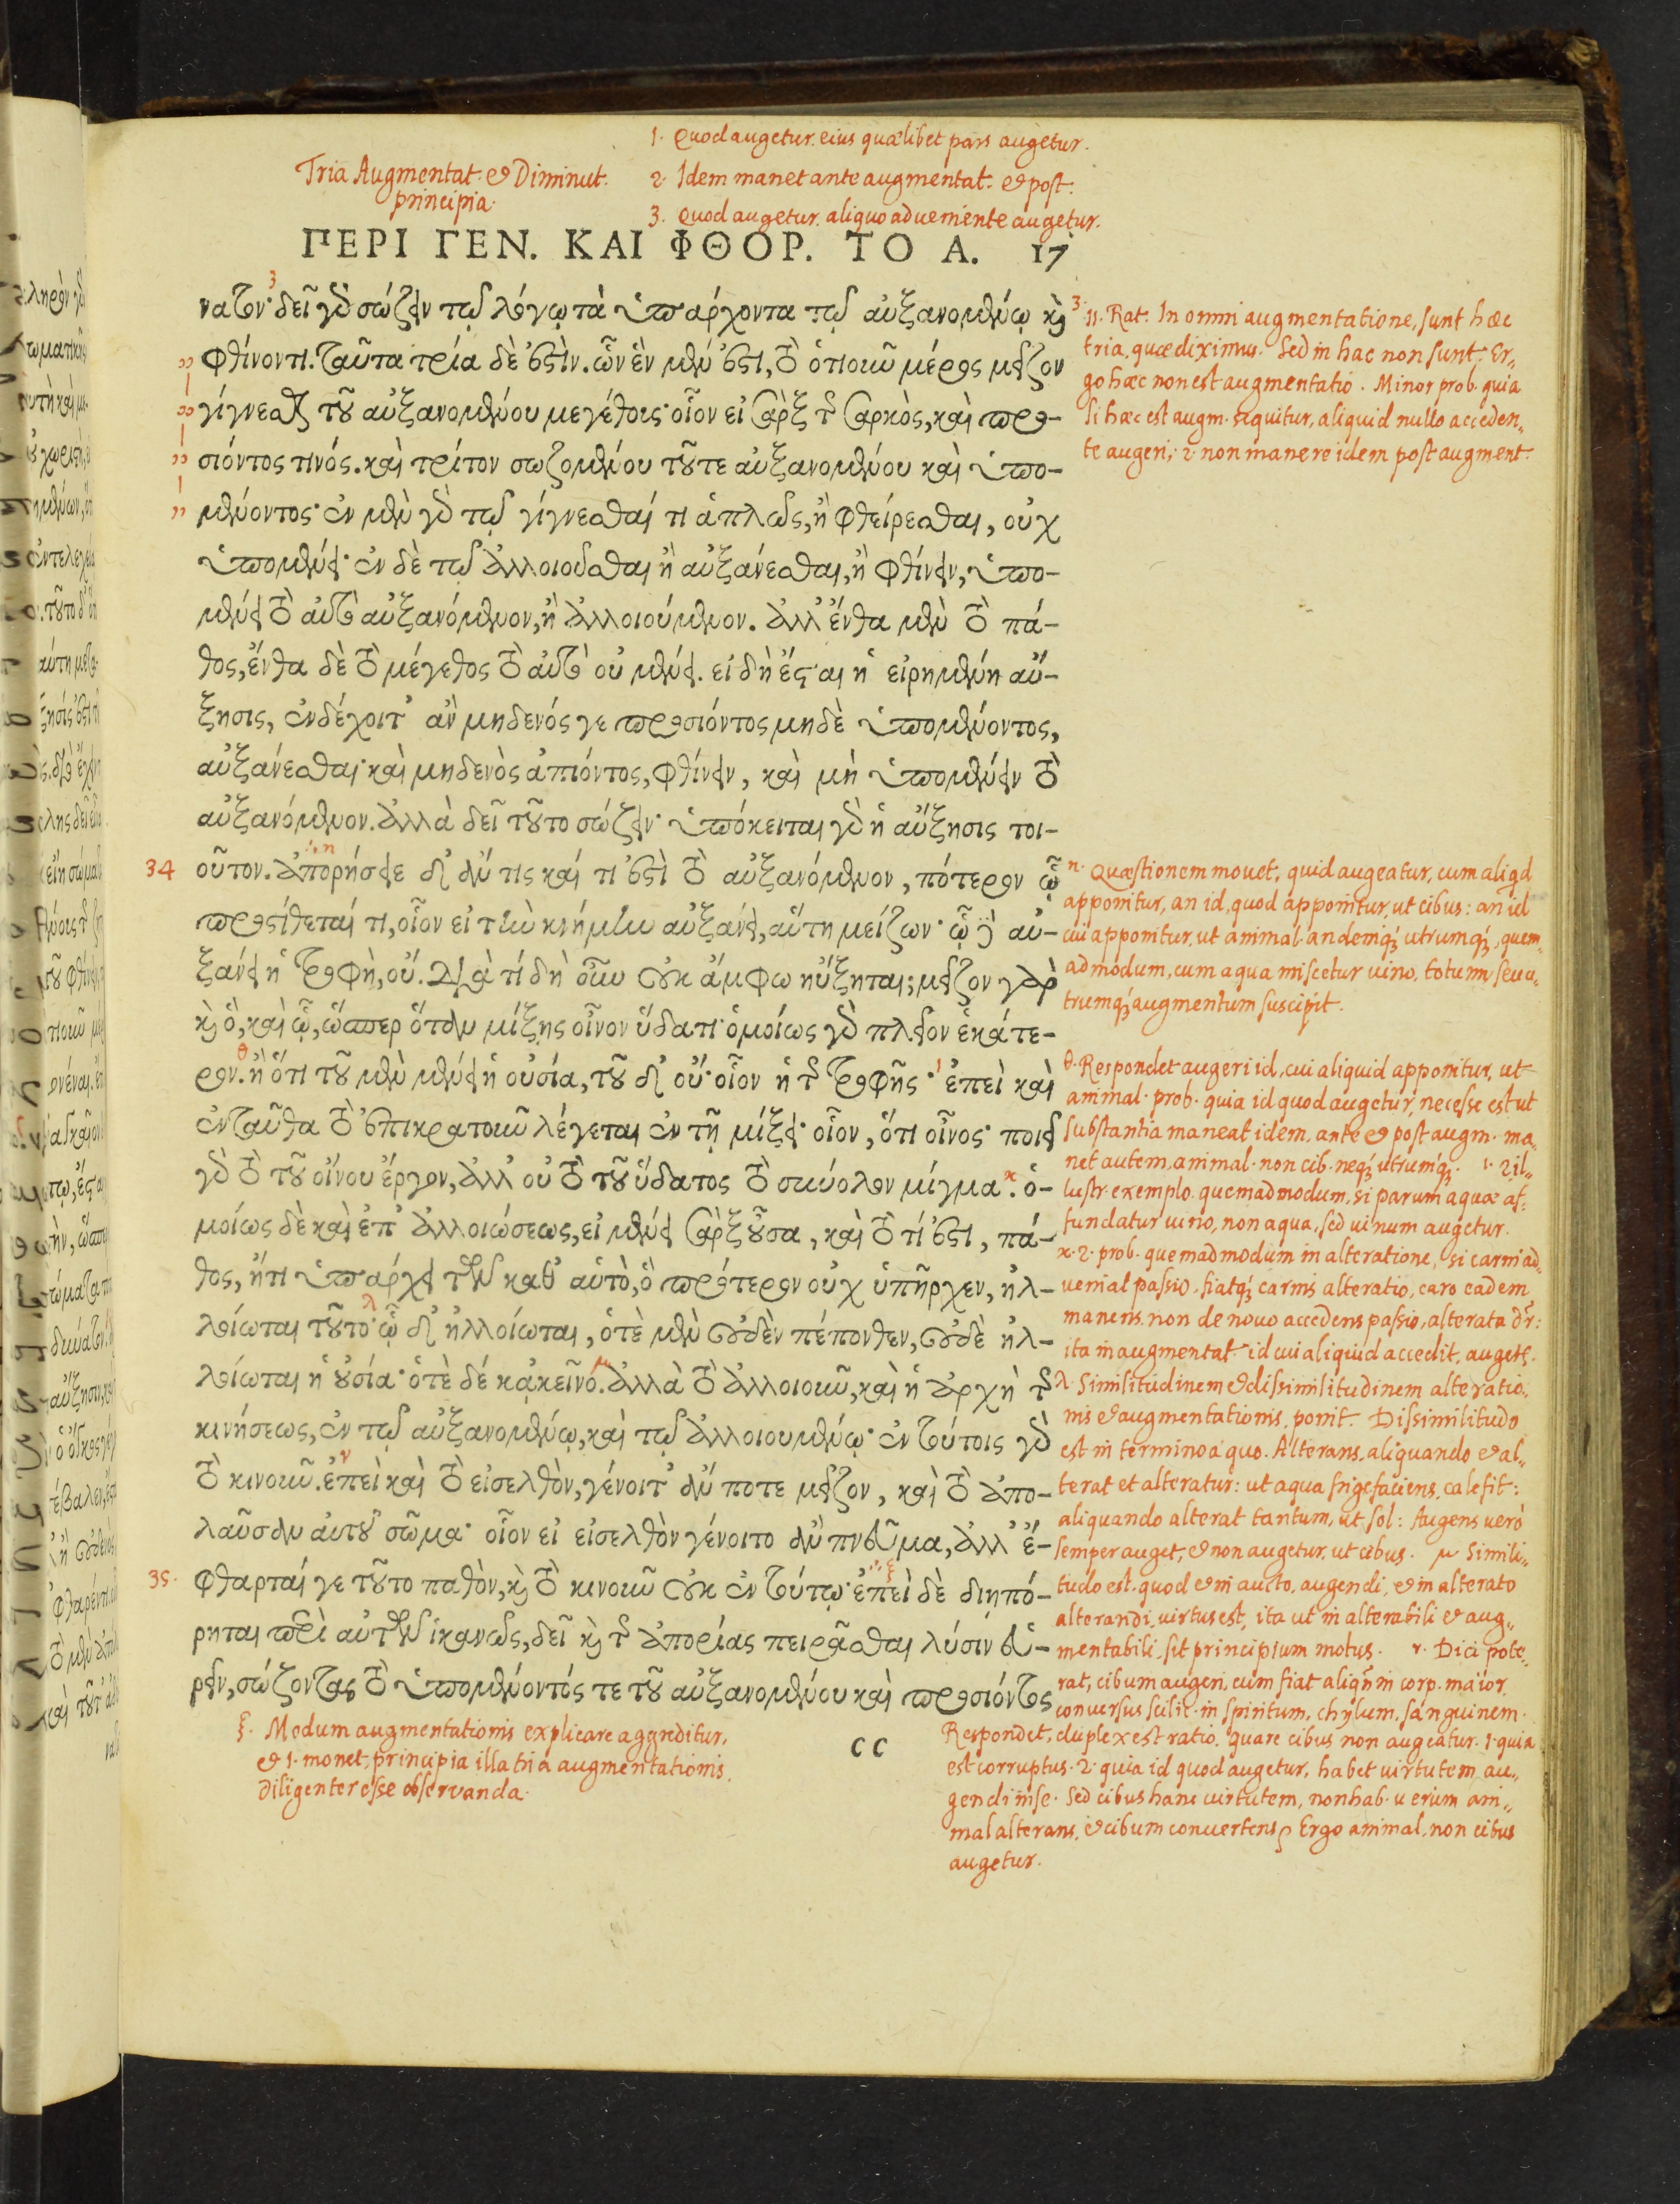 1. Quod augetur. eius quælibet pars augetur.
Tria Augmentat. et Diminut.
principia.
2. Idem manet ante augmentat. et post.
3. Quod augetur. aliquo adveniente augetur.
ΠΕΡΙ ΓΕΝ. ΚΑΙ ΦΘΟΡ. ΤΟ Α. 17
νατον· δεῖ γὸ σώζειν τῷ λόγῳ τὰ ὑπάρχοντα τῷ αὐξανομένῳ καὶ
φθίνοντι. ταῦτα τρία δὲ ἐστὶν. ὧν ἓν μέν ἐστι, τὸ ὁτιοῦν μέρος μεῖζον
γίγνεσθαι τοῦ αὐξανομένου μεγέθους· οἷον εἰ σὰρξ τῆς σαρκὸς, καὶ προ-
σιόντος τινός. καὶ τρίτον σωζομένου τοῦ τε αὐξανομένου καὶ ὑπο-
μένοντος· ἐν μὲν γὸ τῷ γίγνεσθαί τι ἁπλῶς, ἢ φθείρεσθαι, οὐχ
ὑπομένει· ἐν δὲ τῷ ἀλλοιοῦσθαι ἢ αὐξάνεσθαι, ἢ φθίνειν, ὑπο-
μένει τὸ αὐτὸ αὐξανόμενον, ἢ ἀλλοιούμενον. ἀλλ' ἔνθα μὲν τὸ πά-
θος, ἔνθα δὲ τὸ μέγεθος τὸ αὐτὸ οὐ μένει. εἰ δὴ ἔσται ἡ εἰρημένη αὔ-
ξησις, ἐνδέχοιτ' ἂν μηδενός γε προσιόντος μηδὲ ὑπομένοντος,
αὐξάνεσθαι· καὶ μηδενὸς ἀπιόντος, φθίνειν, καὶ μὴ ὑπομένειν τὸ
αὐξανόμενον. ἀλλὰ δεῖ τοῦτο σώζειν· ὑπόκειται γὸ ἡ αὔξησις τοι-
34 οῦτον. ἀπορήσειε δ' ἄν τις καί τί ἐστὶ τὸ αὐξανόμενον, πότερον ᾧ
προστίθεταί τι, οἷον εἰ τὴν κνήμην αὐξάνει, αὕτη μείζων· ᾧ δὲ αὐ-
ξάνει ἡ τροφὴ, οὔ. Διὰ τί δὴ οὖν οὐκ ἄμφω ηὔξηται; μεῖζον γὰρ
καὶ ὃ, καὶ ᾧ, ὥσπερ ὅταν μίξῃς οἶνον ὕδατι· ὁμοίως γὸ πλεῖον ἑκάτε-
ρον. ἢ ὅτι τοῦ μὲν μένει ἡ οὐσία, τοῦ δ' οὔ· οἷον ἡ τῆς τροφῆς· ἐπεὶ καὶ
ἐνταῦθα τὸ ἐπικρατοῦν λέγεται ἐν τῇ μίξει· οἷον, ὅτι οἶνος· ποιεῖ
γὸ τὸ τοῦ οἴνου ἔργον, ἀλλ' οὐ τὸ τοῦ ὕδατος τὸ σύνολον μίγμα. ὁ-
μοίως δὲ καὶ ἐπ' ἀλλοιώσεως, εἰ μένει σὰρξ οὖσα, καὶ τὸ τί ἐστι, πά-
θος, ἤτι ὑπάρχει τῶν καθ' αὑτὸ, ὃ πρότερον οὐχ ὑπῆρχεν, ἠλ-
λοίωται τοῦτο· ᾧ δ' ἠλλοίωται, ὁτὲ μὲν οὐδὲν πέπονθεν, οὐδὲ ἠλ-
λοίωται ἡ οὐσία· ὁτὲ δέ κἀκεῖνο. ἀλλὰ τὸ ἀλλοιοῦν, καὶ ἡ ἀρχὴ τῆς
κινήσεως, ἐν τῷ αὐξανομένῳ, καὶ τῷ ἀλλοιουμένῳ· ἐν τούτοις γὸ
τὸ κινοῦν. ἐπεὶ καὶ τὸ εἰσελθὸν, γένοιτ' ἄν ποτε μεῖζον, καὶ τὸ ἀπο-
λαῦσαν αὐτοῦ σῶμα· οἷον εἰ εἰσελθὸν γένοιτο ἂν πνεῦμα, ἀλλ' ἔ-
35. φθαρταί γε τοῦτο παθὸν, καὶ τὸ κινοῦν οὐκ ἐν τούτῳ· ἐπεὶ δὲ διηπό-
ρηται περὶ αὐτῶν ἱκανῶς, δεῖ καὶ τῆς ἀπορίας πειρᾶσθαι λύσιν εὑ-
ρεῖν, σώζοντας τὸ ὑπομένοντός τε τοῦ αὐξανομένου καὶ προσιόντος
CC
3. 11. Rat. In omni augmentatione, sunt hæc
tria, quæ diximus. Sed in hac non sunt. Er„
go hæc non est augmentatio. Minor prob. quia
si hæc est augm. sequitur, aliquid nullo acceden„
te augeri, 2. non manere idem post augment.
η. Quæstionem movet, quid augeatur, cum aliqd
apponitur, an id, quod apponitur, ut cibus: an id
cui apponitur, ut animal. an deniq; utrumq;, quem„
admodum, cum aqua miscetur vino, totum seu u„
trumq; augmentum suscipit.
θ. Respondet augeri id, cui aliquid apponitur, ut
animal. prob. quia id quod augetur, necesse est ut
substantia maneat idem, ante et post augm. ma„
net autem, animal. non cib. neq; utrumq;. ι. 2 il„
lustr. exemplo. quemadmodum, si parum aquæ af„
fundatur vino, non aqua, sed vinum augetur.
κ. 2. prob. quemadmodum in alteratione, si carni ad„
veniat passio, fiatq; carnis alteratio, caro eadem
manens, non de novo accedens passio, alterata dr:
ita in augmentat. id cui aliquid accedit, auget.
λ. Similitudinem et dissimilitudinem alteratio„
nis et augmentationis, ponit. Dissimilitudo
est in termino a quo. Alterans, aliquando et al„
terat et alteratur: ut aqua frigefaciens, calefit:
aliquando alterat tantum, ut sol: Augens verò
semper auget, et non augetur, ut cibus. μ Simili„
tudo est. quod et in aucto, augendi, et in alterato
alterandi, virtus est, ita ut in alterabili et aug„
mentabili, sit principium motus. ν. Dici pote„
rat, cibum augeri, cum fiat aliqn in corp. maior,
conversus scilic. in spiritum, chylum, sanguinem.
Respondet, duplex est ratio, quare cibus non augeatur. 1. quia
est corruptus. 2. quia id quod augetur, habet virtutem au„
gendi in se. Sed cibus hanc virtutem, non hab. verum ani„
mal alterans, et cibum convertens, Ergo animal, non cibus
augetur.
ξ. Modum augmentationis explicare aggreditur,
et 1. monet, principia illa tria augmentationis,
diligenter esse observanda.